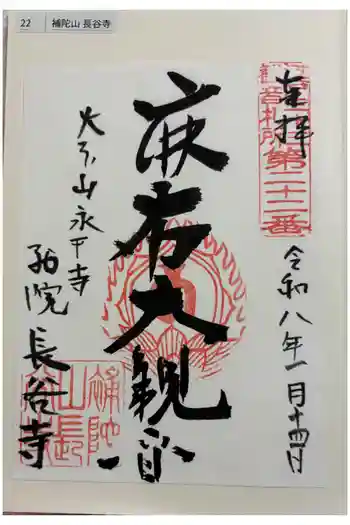 22 補陀山 長谷寺
奉拝
観音札所第二十二番
令和八年一月十四日
麻布大観音
大本山永平寺
別院
長谷寺
補陀山長谷寺